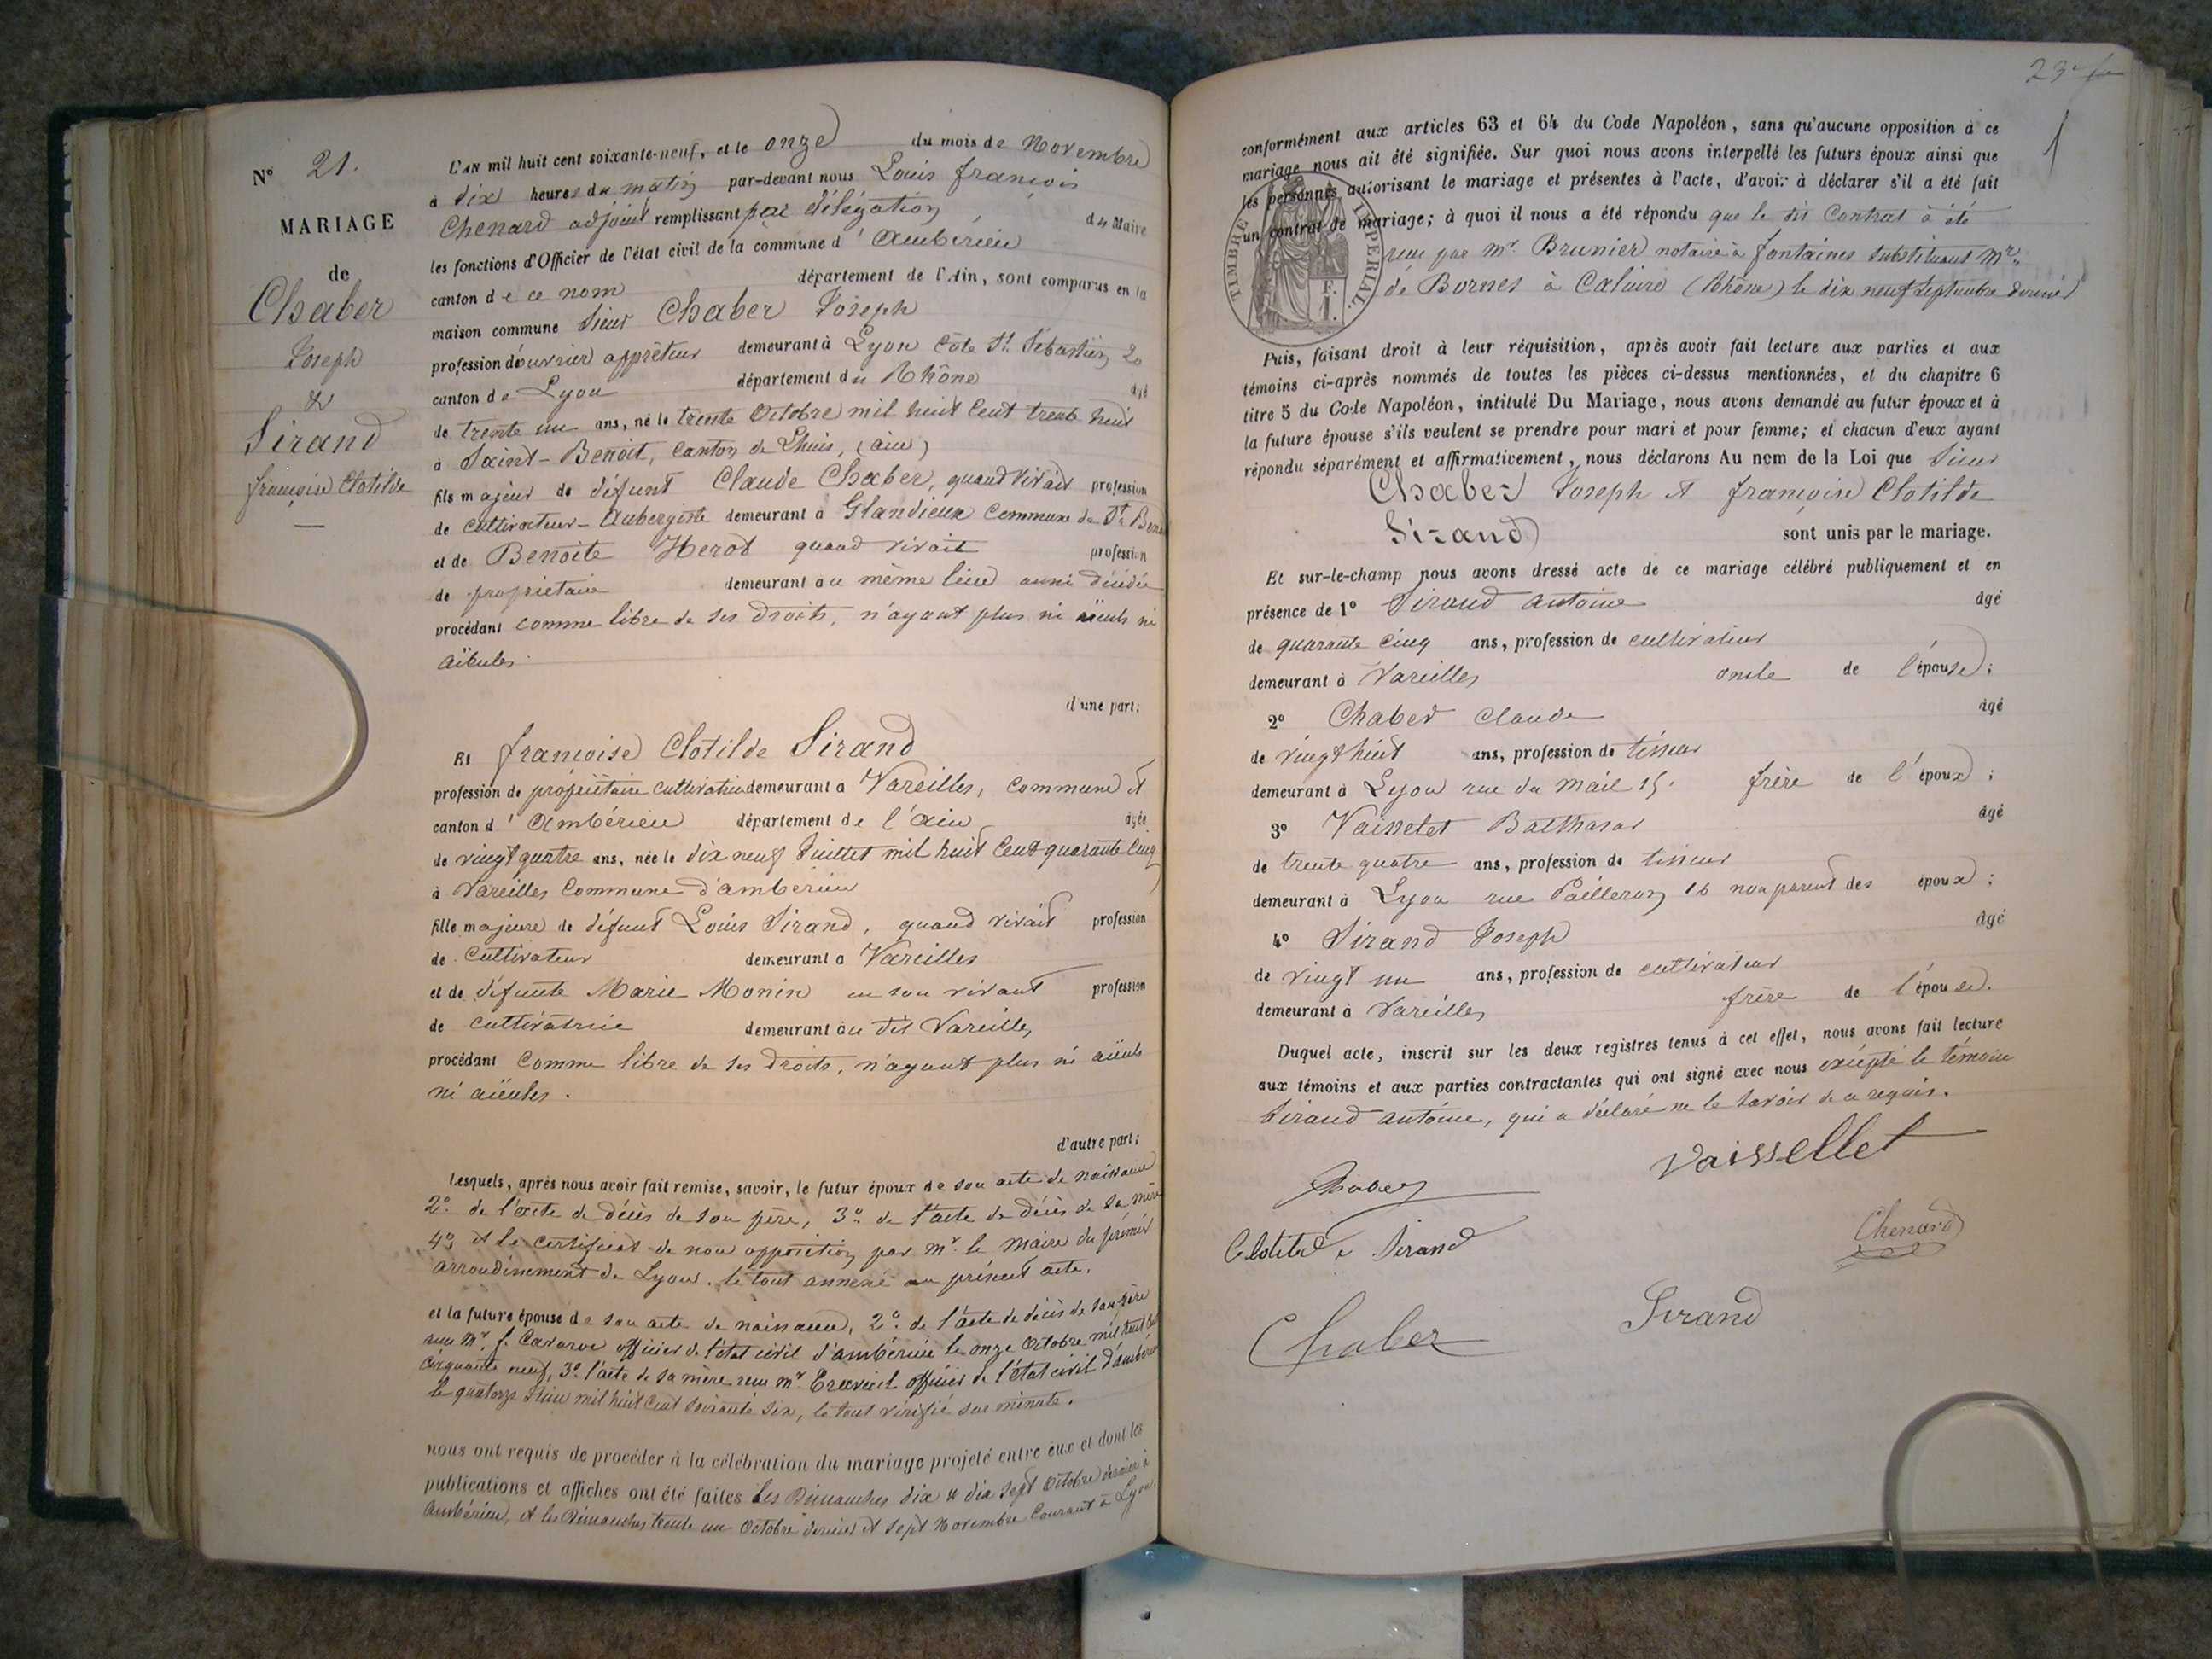 N° 21.
MARIAGE
de
Chaber
Joseph
&
Sirand
françoise Clotilde
L'AN mil huit cent soixante-neuf, et le onze du mois de Novembre
à dix heures du matin par-devant nous Louis françois
Chenard adjoint remplissant par délégation du Maire
les fonctions d'Officier de l'état civil de la commune d' Ambérieu
canton de ce nom département de l'Ain, sont comparus en la
maison commune Sieur Chaber Joseph
profession d'ouvrier apprêteur demeurant à Lyon Côte St. Sébastien, 20
canton de Lyon département du Rhône âgé
de trente un ans, né le trente Octobre mil huit Cent trente huit
à Saint-Benoit, Canton de Lhuis, (ain)
fils majeur de défunt Claude Chaber, quand vivait profession
de cultivateur-Aubergiste demeurant à Glandieux Commune de St. Benoit
et de Benoite Herot quand vivait profession
de propriétaire demeurant au même lieu aussi décédée
procédant comme libre de ses droits, n'ayant plus ni aïeuls ni
aïeules.
d'une part;
Et françoise Clotilde Sirand
profession de propriétaire cultivatrice demeurant à Vareilles, commune et
canton d' Ambérieu département de l'ain âgée
de vingt quatre ans, née le dix neuf Juillet mil huit Cent quarante Cinq
à Vareilles Commune d'ambérieu
fille majeure de défunt Louis Sirand, quand vivait profession
de Cultivateur demeurant à Vareilles
et de défunte Marie Monin en son vivant profession
de cultivatrice demeurant au dit Vareilles,
procédant Comme libre de ses droits, n'ayant plus ni aïeuls
ni aïeules.
d'autre part;
Lesquels, après nous avoir fait remise, savoir, le futur époux de son acte de naissance
2° de l'acte de décès de son père, 3° de l'acte de décès de sa mère
4° et le certificat de non opposition par Mr. le Maire du premier
arrondissement de Lyon. le tout annexé au présent acte.
et la future épouse de son acte de naissance, 2° de l'acte de décès de son père
reçu Mr. f. officier de l'état civil d'ambérieu le onze Octobre mil huit cent
cinquante neuf, 3° l'acte de sa mère reçu Mr. officier de l'état civil d'ambérieu
le quatorze Juin mil huit Cent soixante six, le tout vérifié sur minute.
nous ont requis de procéder à la célébration du mariage projeté entre eux et dont les
publications et affiches ont été faites les Dimanches dix et dix sept Octobre dernier à
Ambérieu, et les Dimanches trente un Octobre dernier et sept Novembre Courant à Lyon.
conformément aux articles 63 et 64 du Code Napoléon, sans qu'aucune opposition à ce
mariage nous ait été signifiée. Sur quoi nous avons interpellé les futurs époux ainsi que
les personnes autorisant le mariage et présentes à l'acte, d'avoir à déclarer s'il a été fait
un contrat de mariage; à quoi il nous a été répondu que le dit Contrat à été
reçu par Mr. Brunier notaire à fontaines substituant Mr.
de Bornes à Caluire (Rhône) le dix neuf Septembre dernier
TIMBRE IMPERIAL
Puis, faisant droit à leur réquisition, après avoir fait lecture aux parties et aux
témoins ci-après nommés de toutes les pièces ci-dessus mentionnées, et du chapitre 6
titre 5 du Code Napoléon, intitulé Du Mariage, nous avons demandé au futur époux et à
la future épouse s'ils veulent se prendre pour mari et pour femme; et chacun d'eux ayant
répondu séparément et affirmativement, nous déclarons Au nom de la Loi que Sieur
Chaber Joseph et françoise Clotilde
Sirand sont unis par le mariage.
Et sur-le-champ nous avons dressé acte de ce mariage célébré publiquement et en
présence de 1° Sirand Antoine âgé
de quarante cinq ans, profession de cultivateur
demeurant à Vareilles oncle de l'épouse;
2° Chaber Claude âgé
de vingt huit ans, profession de tisseur
demeurant à Lyon rue du Mail 15. frère de l'époux;
3° Vaisselet Balthasar âgé
de trente quatre ans, profession de tisseur
demeurant à Lyon rue Pailleron 16 non parent des époux;
4° Sirand Joseph âgé
de vingt un ans, profession de cultivateur
demeurant à Vareilles frère de l'épouse.
Duquel acte, inscrit sur les deux registres tenus à cet effet, nous avons fait lecture
aux témoins et aux parties contractantes qui ont signé avec nous excepté le témoin
Sirand Antoine, qui a déclaré ne le savoir de ce requis.
Vaissellet
Chaber
Chenard
Clotilde Sirand
Sirand
Chaber